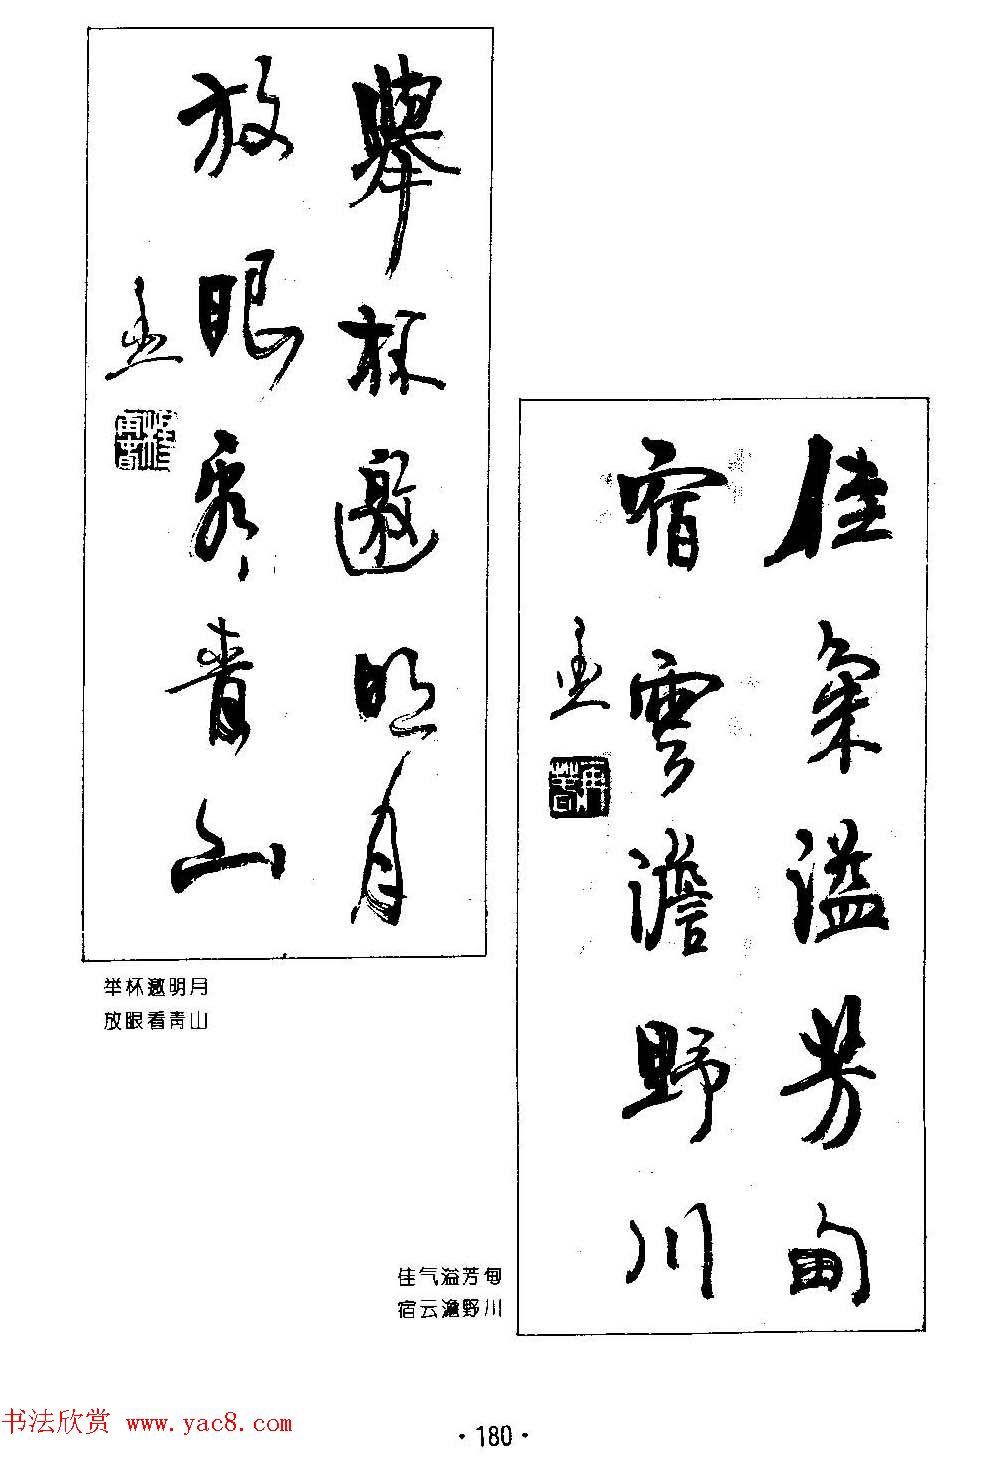 舉杯邀明月
放眼看青山
举杯邀明月
放眼看青山
佳氣溢芳甸
宿雲澹野川
佳气溢芳甸
宿云澹野川
书法欣赏 www.yac8.com
·180·